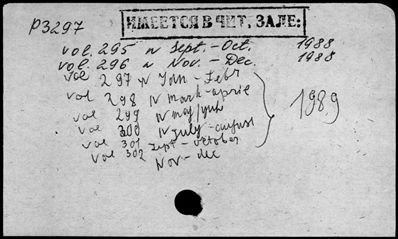 P3297
ИМЕЕТСЯ В ЧИТ. ЗАЛЕ:
vol. 295 N Sept. - Oct. 1988
vol. 296 N Nov. - Dec. 1988
vol 297 N Jan - Febr
vol 298 N march-april
vol 299 N may/june
vol 300 N July-august
vol 301 sept-october
vol 302 Nov-dec
1989